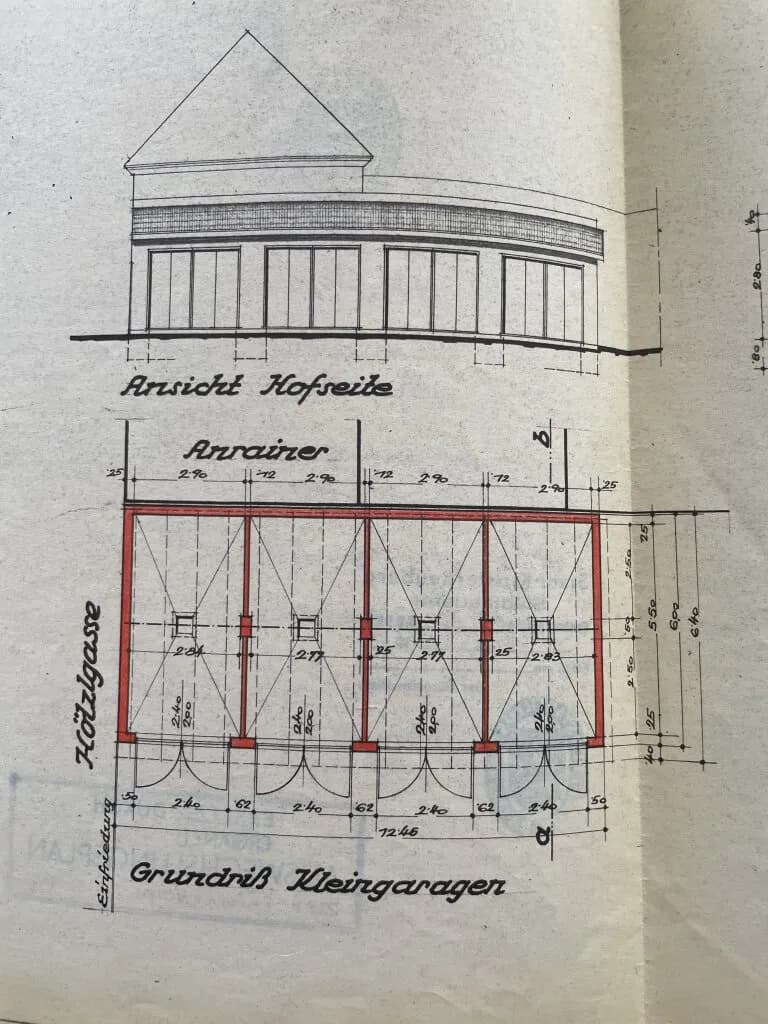 Ansicht Hofseite
·40
2·80
·80
Anrainer
b
·25 2·90 ·12 2·90 ·12 2·90 ·12 2·90 ·25
·25
2·50
·50
5·50
6,00
6·40
2·84 2·77 ·25 2·77 ·25 2·83
2·50
Hölzlgasse
2·40 2·40 2·40 2·40
2·00 2·00 2·00 2·00
·25
·40
·50 2·40 ·62 2·40 ·62 2·40 ·62 2·40 ·50
12·46
a
Einfriedung
Grundriß Kleingaragen